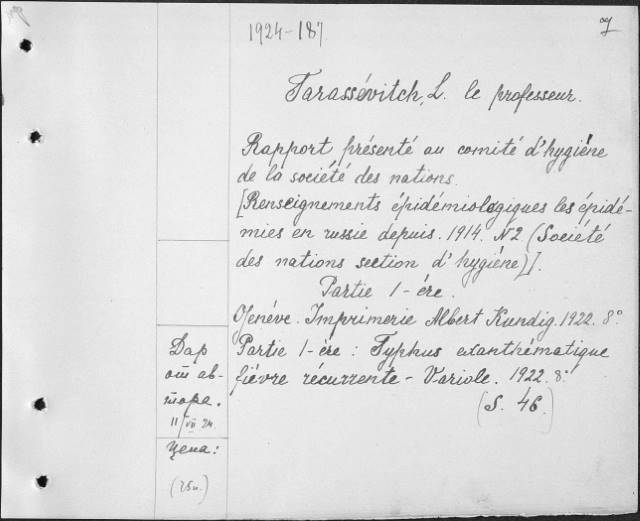 1924-187
Tarassévitch, L. le professeur.
Rapport présenté au comité d'hygiéne
de la société des nations.
[Renseignements épidémiologiques les épidé-
mies en russie depuis. 1914. N2 (Société
des nations section d'hygiéne)].
Partie 1-ére.
Genéve. Imprimerie Albert Kundig. 1922. 8°
Partie 1-ére: Typhus exanthématique
fiévre récurrente - Variole. 1922. 8°
(S. 46.)
Дар
от ав-
тора.
11/VII 24
Цена:
(25к.)